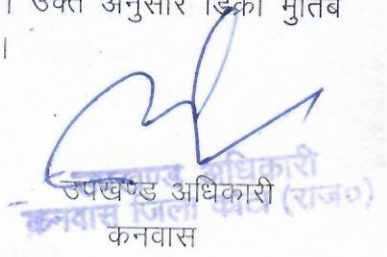 । उक्त अनुसार डिक्री मुर्तिब
।
उपखण्ड अधिकारी
उपखण्ड अधिकारी
कनवास जिला कोटा (राज०)
कनवास